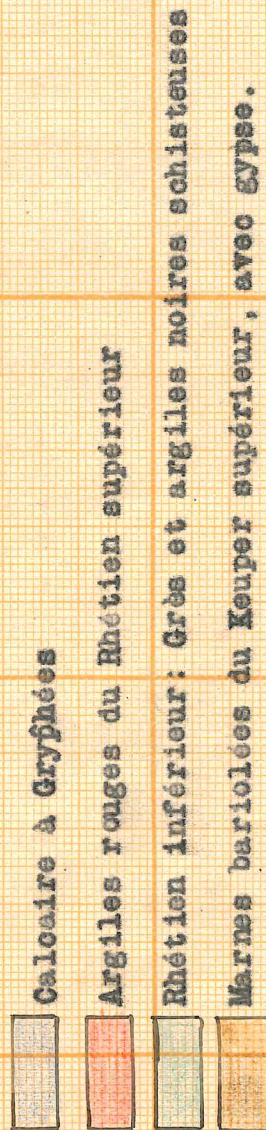 Calcaire à Gryphées
Argiles rouges du Rhétien supérieur
Rhétien inférieur: Grès et argiles noires schisteuses
Marnes bariolées du Keuper supérieur, avec gypse.